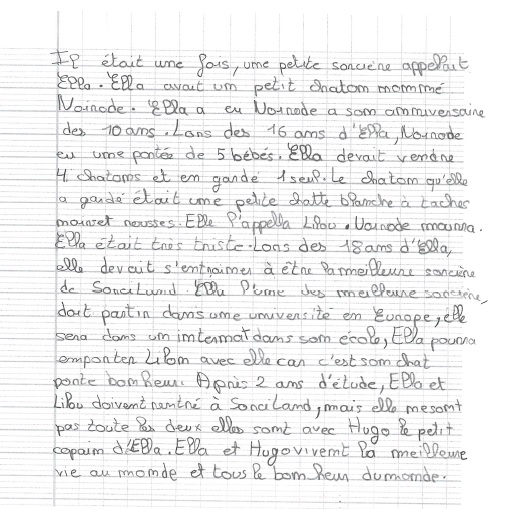 Il était une fois, une petite sorcière appelait
Ella. Ella avait un petit chaton nommé
Noirode. Ella a eu Noirode a son anniversaire
des 10 ans. Lors des 16 ans d'Ella, Noirode
eu une portée de 5 bébés. Ella devait vendre
4 chatons et en gardé 1 seul. Le chaton qu'elle
a gardé était une petite chatte blanche à taches
noir et rousses. Elle l'appella Lilou. Noirode mourra.
Ella était très triste. Lors des 18 ans d'Ella,
elle devait s'entrainer à être la meilleure sorcière
de SorciLand. Ella l'une des meilleure sorcière,
doit partir dans une université en Europe, elle
sera dans un internat dans son école, Ella pourra
emporter Lilou avec elle car c'est son chat
porte bonheur. Après 2 ans d'étude, Ella et
Lilou doivent rentré à SorciLand, mais elle ne sont
pas toute les deux elles sont avec Hugo le petit
copain d'Ella. Ella et Hugo vivent la meilleure
vie au monde et tous le bonheur du monde.